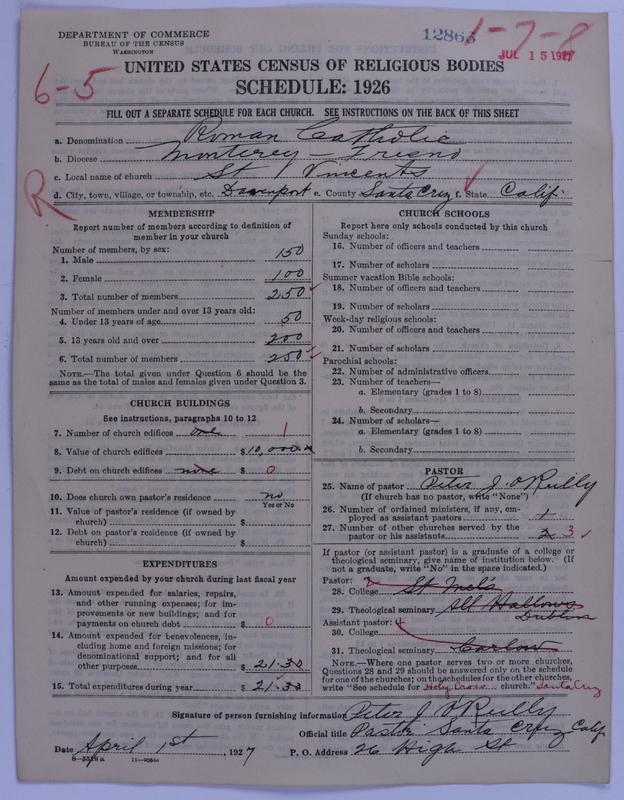 DEPARTMENT OF COMMERCE
BUREAU OF THE CENSUS
WASHINGTON
12863
1-7-8
JUL 15 1927
UNITED STATES CENSUS OF RELIGIOUS BODIES
SCHEDULE: 1926
6-5
FILL OUT A SEPARATE SCHEDULE FOR EACH CHURCH. SEE INSTRUCTIONS ON THE BACK OF THIS SHEET
a. Denomination Roman Catholic
b. Diocese Monterey-Fresno
c. Local name of church St Vincents
R
d. City, town, village, or township, etc. Davenport e. County Santa Cruz f. State Calif.
MEMBERSHIP
Report number of members according to definition of
member in your church
Number of members, by sex:
1. Male 150
2. Female 100
3. Total number of members 250
Number of members under and over 13 years old:
4. Under 13 years of age 50
5. 13 years old and over 200
6. Total number of members 250
NOTE.—The total given under Question 6 should be the
same as the total of males and females given under Question 3.
CHURCH BUILDINGS
See instructions, paragraphs 10 to 12
7. Number of church edifices one 1
8. Value of church edifices $10,000.
9. Debt on church edifices none $ 0
10. Does church own pastor's residence no
Yes or No
11. Value of pastor's residence (if owned by
church) $
12. Debt on pastor's residence (if owned by
church) $
EXPENDITURES
Amount expended by your church during last fiscal year
13. Amount expended for salaries, repairs,
and other running expenses; for im-
provements or new buildings; and for
payments on church debt $ 0
14. Amount expended for benevolences, in-
cluding home and foreign missions; for
denominational support; and for all
other purposes 21.30
15. Total expenditures during year $ 21.30
CHURCH SCHOOLS
Report here only schools conducted by this church
Sunday schools:
16. Number of officers and teachers
17. Number of scholars
Summer vacation Bible schools:
18. Number of officers and teachers
19. Number of scholars
Week-day religious schools:
20. Number of officers and teachers
21. Number of scholars
Parochial schools:
22. Number of administrative officers
23. Number of teachers—
a. Elementary (grades 1 to 8)
b. Secondary
24. Number of scholars—
a. Elementary (grades 1 to 8)
b. Secondary
PASTOR
25. Name of pastor Peter J. O'Reilly
(If church has no pastor, write "None")
26. Number of ordained ministers, if any, em-
ployed as assistant pastors 1
27. Number of other churches served by the
pastor or his assistants 2 3
If pastor (or assistant pastor) is a graduate of a college or
theological seminary, give name of institution below. (If
not a graduate, write "No" in the space indicated.)
Pastor:
28. College St Mel's
29. Theological seminary All Hallows
Dublin
Assistant pastor:
30. College
31. Theological seminary Carlow
NOTE.—Where one pastor serves two or more churches,
Questions 28 and 29 should be answered only on the schedule
for one of the churches; on the schedules for the other churches,
write "See schedule for Holy Cross church." Santa Cruz
Signature of person furnishing information Peter J. O'Reilly
Official title Pastor Santa Cruz Calif
Date April 1st, 1927 P. O. Address 26 High St
8-5518a 11-9554a